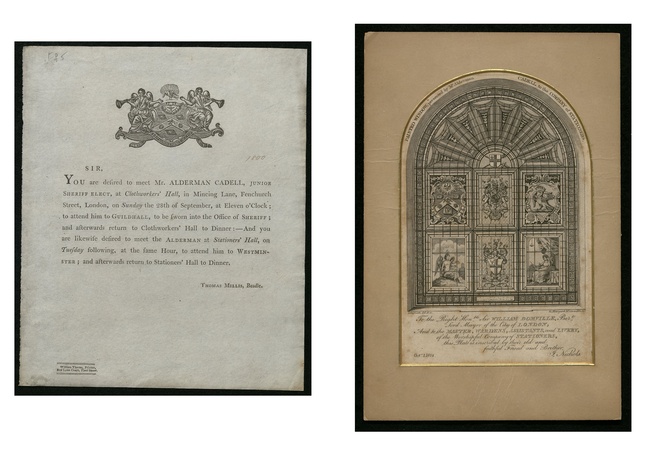 SIR,
YOU are desired to meet Mr. ALDERMAN CADELL, JUNIOR
SHERIFF ELECT, at Clothworkers' Hall, in Mincing Lane, Fenchurch
Street, London, on Sunday the 28th of September, at Eleven o'Clock;
to attend him to GUILDHALL, to be sworn into the Office of SHERIFF;
and afterwards return to Clothworkers' Hall to Dinner:—And you
are likewise desired to meet the ALDERMAN at Stationers' Hall, on
Tuesday following, at the same Hour, to attend him to WESTMIN-
STER; and afterwards return to Stationers' Hall to Dinner.
THOMAS MELLIS, Beadle.
To the Right Hon. Sir WILLIAM DOMVILLE, Bart.
Lord Mayor of the City of LONDON,
And to the MASTER, WARDENS, ASSISTANTS, and LIVERY,
of the Worshipful Company of STATIONERS,
this Plate is inscribed by their old and
faithful Friend and Brother
J. Nichols